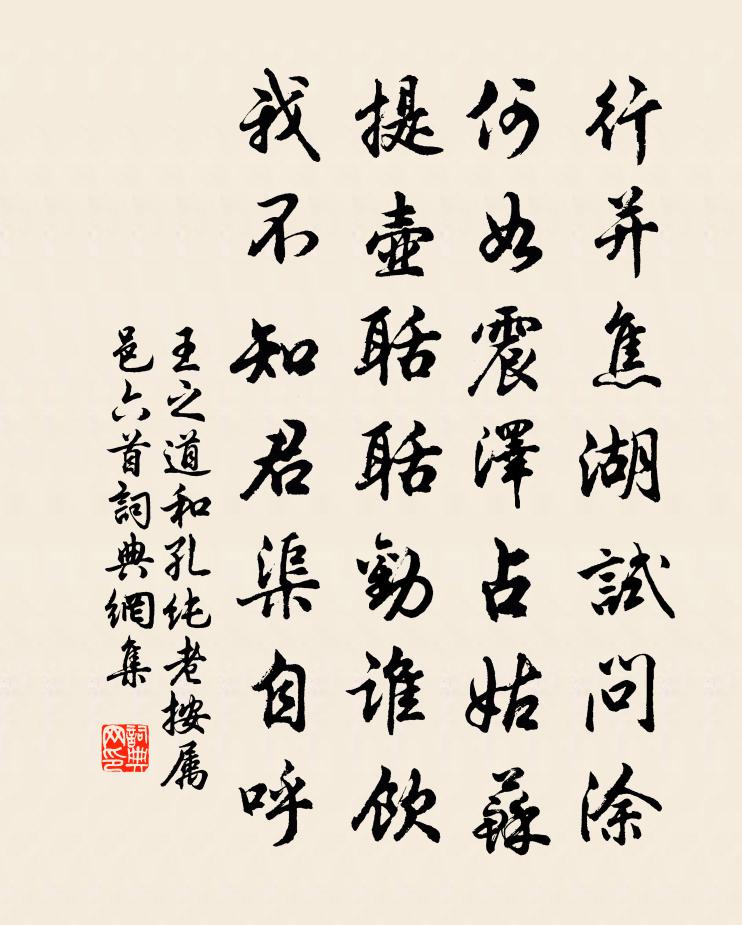 行并焦湖試問涂
何如震澤占姑蘇
提壺聒聒勸誰飲
我不知君渠自呼
王之道和孔純老按属
邑六首詞典網集
詞典
网印